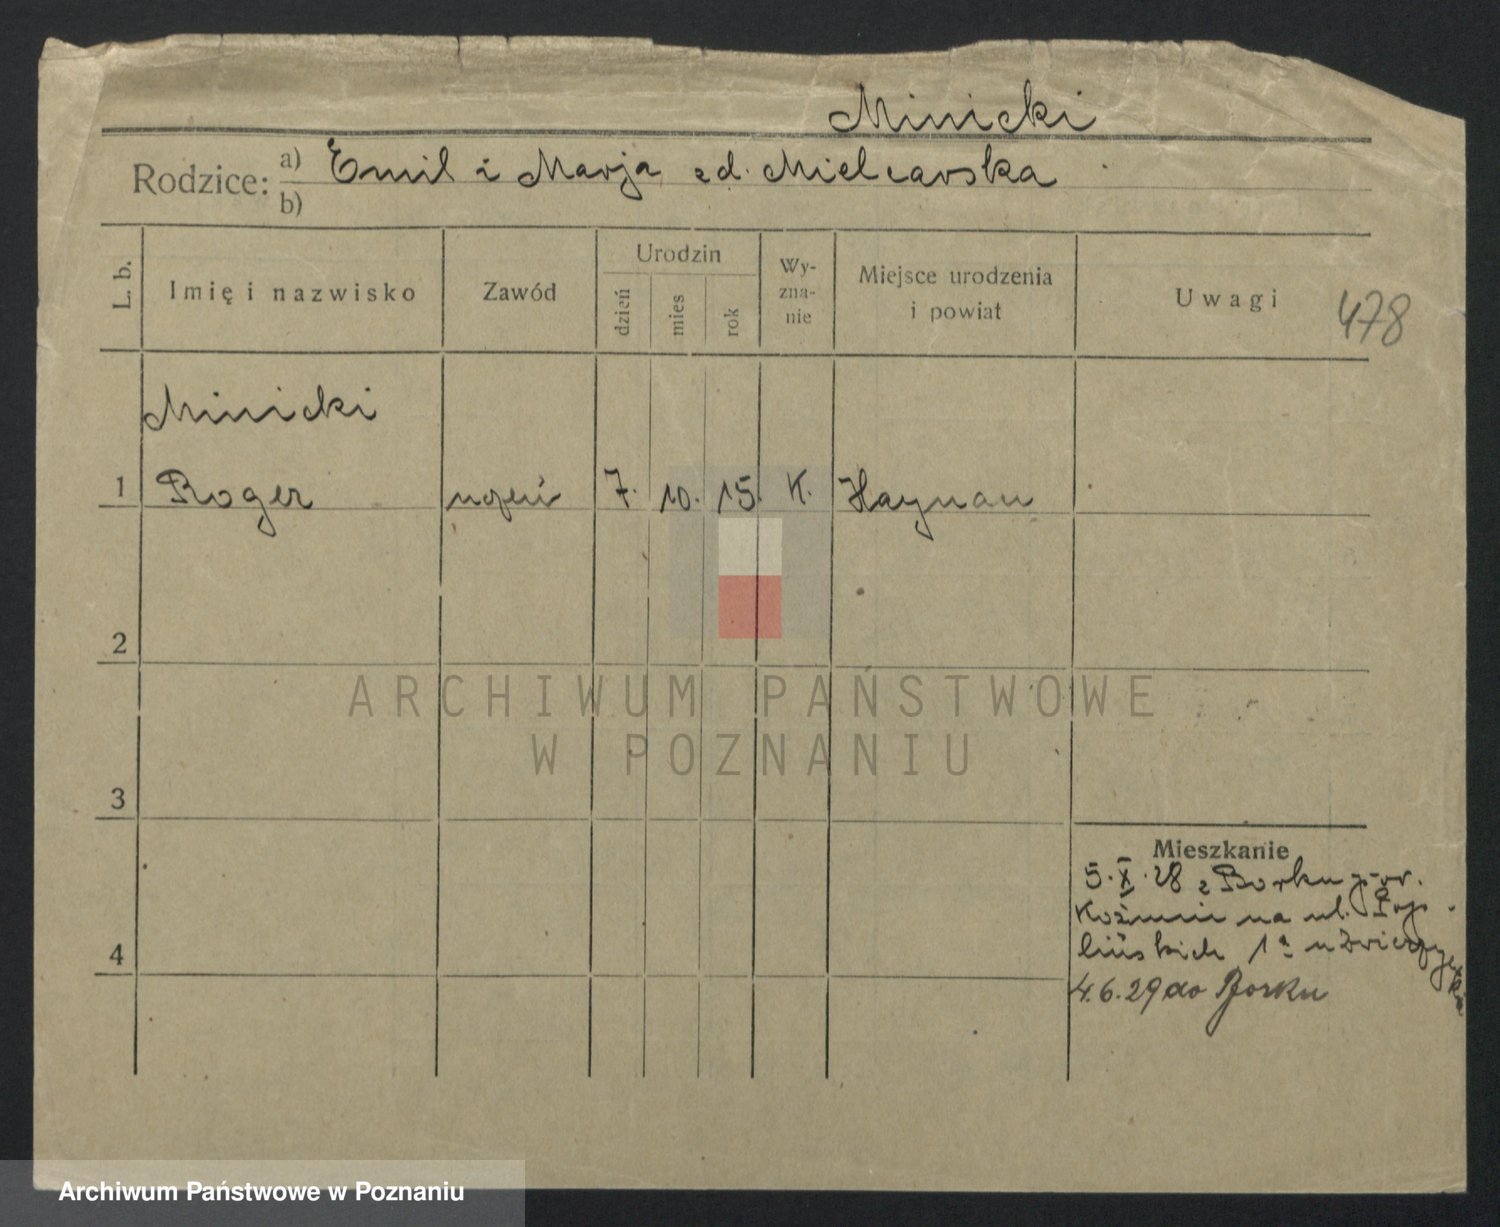 Minicki
Rodzice: a) Emil i Marja zd. Mielcarska
b)
L. b.
Imię i nazwisko
Zawód
Urodzin
dzień
mies
rok
Wy-
zna-
nie
Miejsce urodzenia
i powiat
Uwagi
478
Minicki
1 Roger uczeń 7. 10. 15. K. Haynau
2
3
4
ARCHIWUM PAŃSTWOWE
W POZNANIU
Mieszkanie
5.X.28 z Borku
Koźmin na ul.
1a u
4.6.29 do Borku
Archiwum Państwowe w Poznaniu